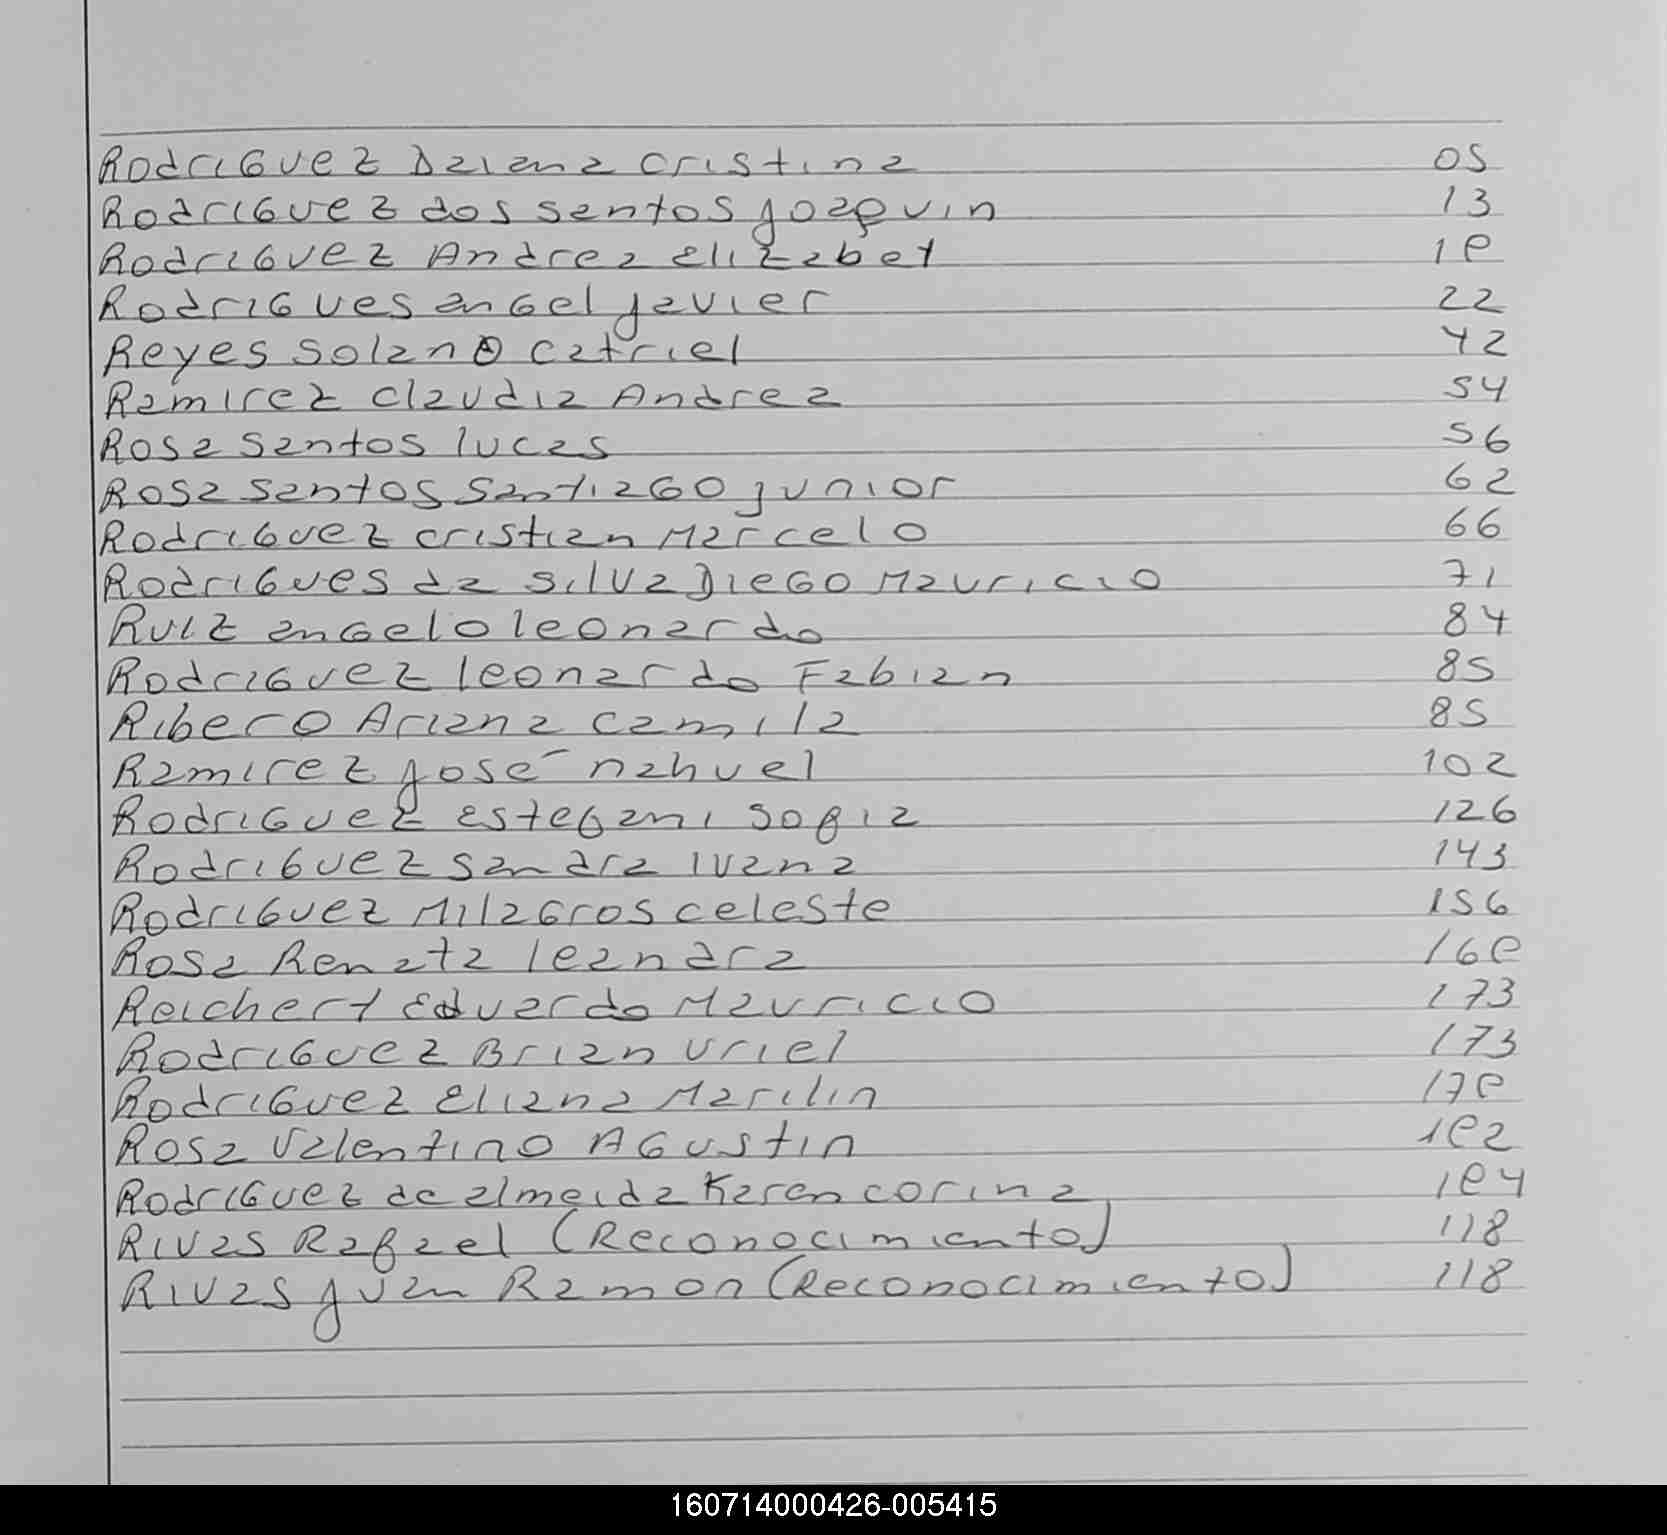 Rodriguez Daiana Cristina 05
Rodriguez dos santos joaquin 13
Rodriguez Andrea elizabet 19
Rodrigues angel javier 22
Reyes solano catriel 42
Ramirez claudia Andrea 54
Rosa santos lucas 56
Rosa santos santiago junior 62
Rodriguez cristian Marcelo 66
Rodrigues da silva Diego Mauricio 71
Ruiz angelo leonardo 84
Rodriguez leonardo Fabian 85
Ribero Ariana camila 85
Ramirez josé nahuel 102
Rodriguez estefani sofia 126
Rodriguez sandra ivana 143
Rodriguez Milagros celeste 156
Rosa Renata leandra 169
Reichert Eduardo Mauricio 173
Rodriguez Brian uriel 173
Rodriguez Eliana Marilin 179
Rosa Valentino Agustin 192
Rodriguez de almeida Karen corina 194
Rivas Rafael (Reconocimiento) 118
Rivas juan Ramon (Reconocimiento) 118
160714000426-005415